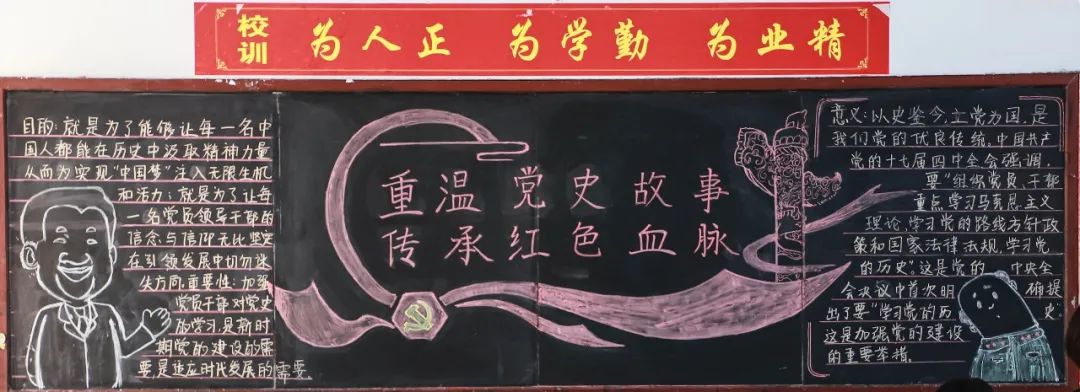 校训
为人正 为学勤 为业精
目的：就是为了能够让每一名中
国人都能在历史中汲取精神力量
从而为实现“中国梦”注入无限生机
和活力；就是为了让每
一名党员领导干部的
信念与信仰无比坚定
在引领发展中切勿迷
失方向.重要性：加强
党员干部对党史
的学习,是新时
期党的建设的需
要,是适应时代发展的需要.
重温党史故事
传承红色血脉
意义：以史鉴今,立党为国,是
我们党的优良传统。中国共产
党的十七届四中全会强调,
要“组织党员、干部
重点学习马克思主义
理论,学习党的路线方针政
策和国家法律法规,学习党
的历史”.这是党的 中央全
会决议中首次明 确提
出了要“学习党的历 史.
这是加强党的建设
的重要举措.